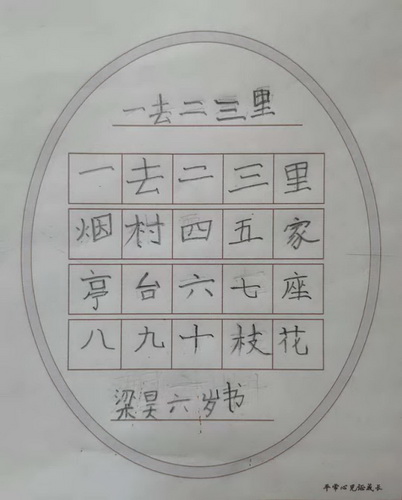 一去二三里
一去二三里
烟村四五家
亭台六七座
八九十枝花
梁昊六岁书
平常心见证成长